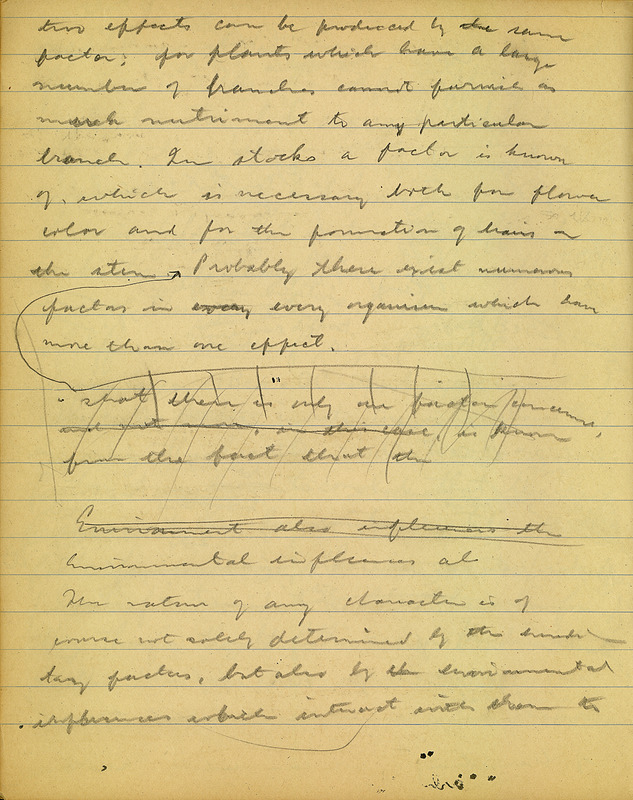 two effects can be produced by the same
factor; for plants which have a large
number of branches cannot furnish as
much nutriment to any particular
branch. In stocks a factor is known
of, which is necessary both for flower
color and for the formation of hairs on
the stem → Probably there exist numerous
factors in every every organism which have
more than one effect.
that there is only one factor concerned,
and not more, in this case, is known
from the fact that the
Environment also influences the
Environmental influences al
The nature of any character is of
course not solely determined by the heredi-
tary factors, but also by the environmental
influences which interact with them to